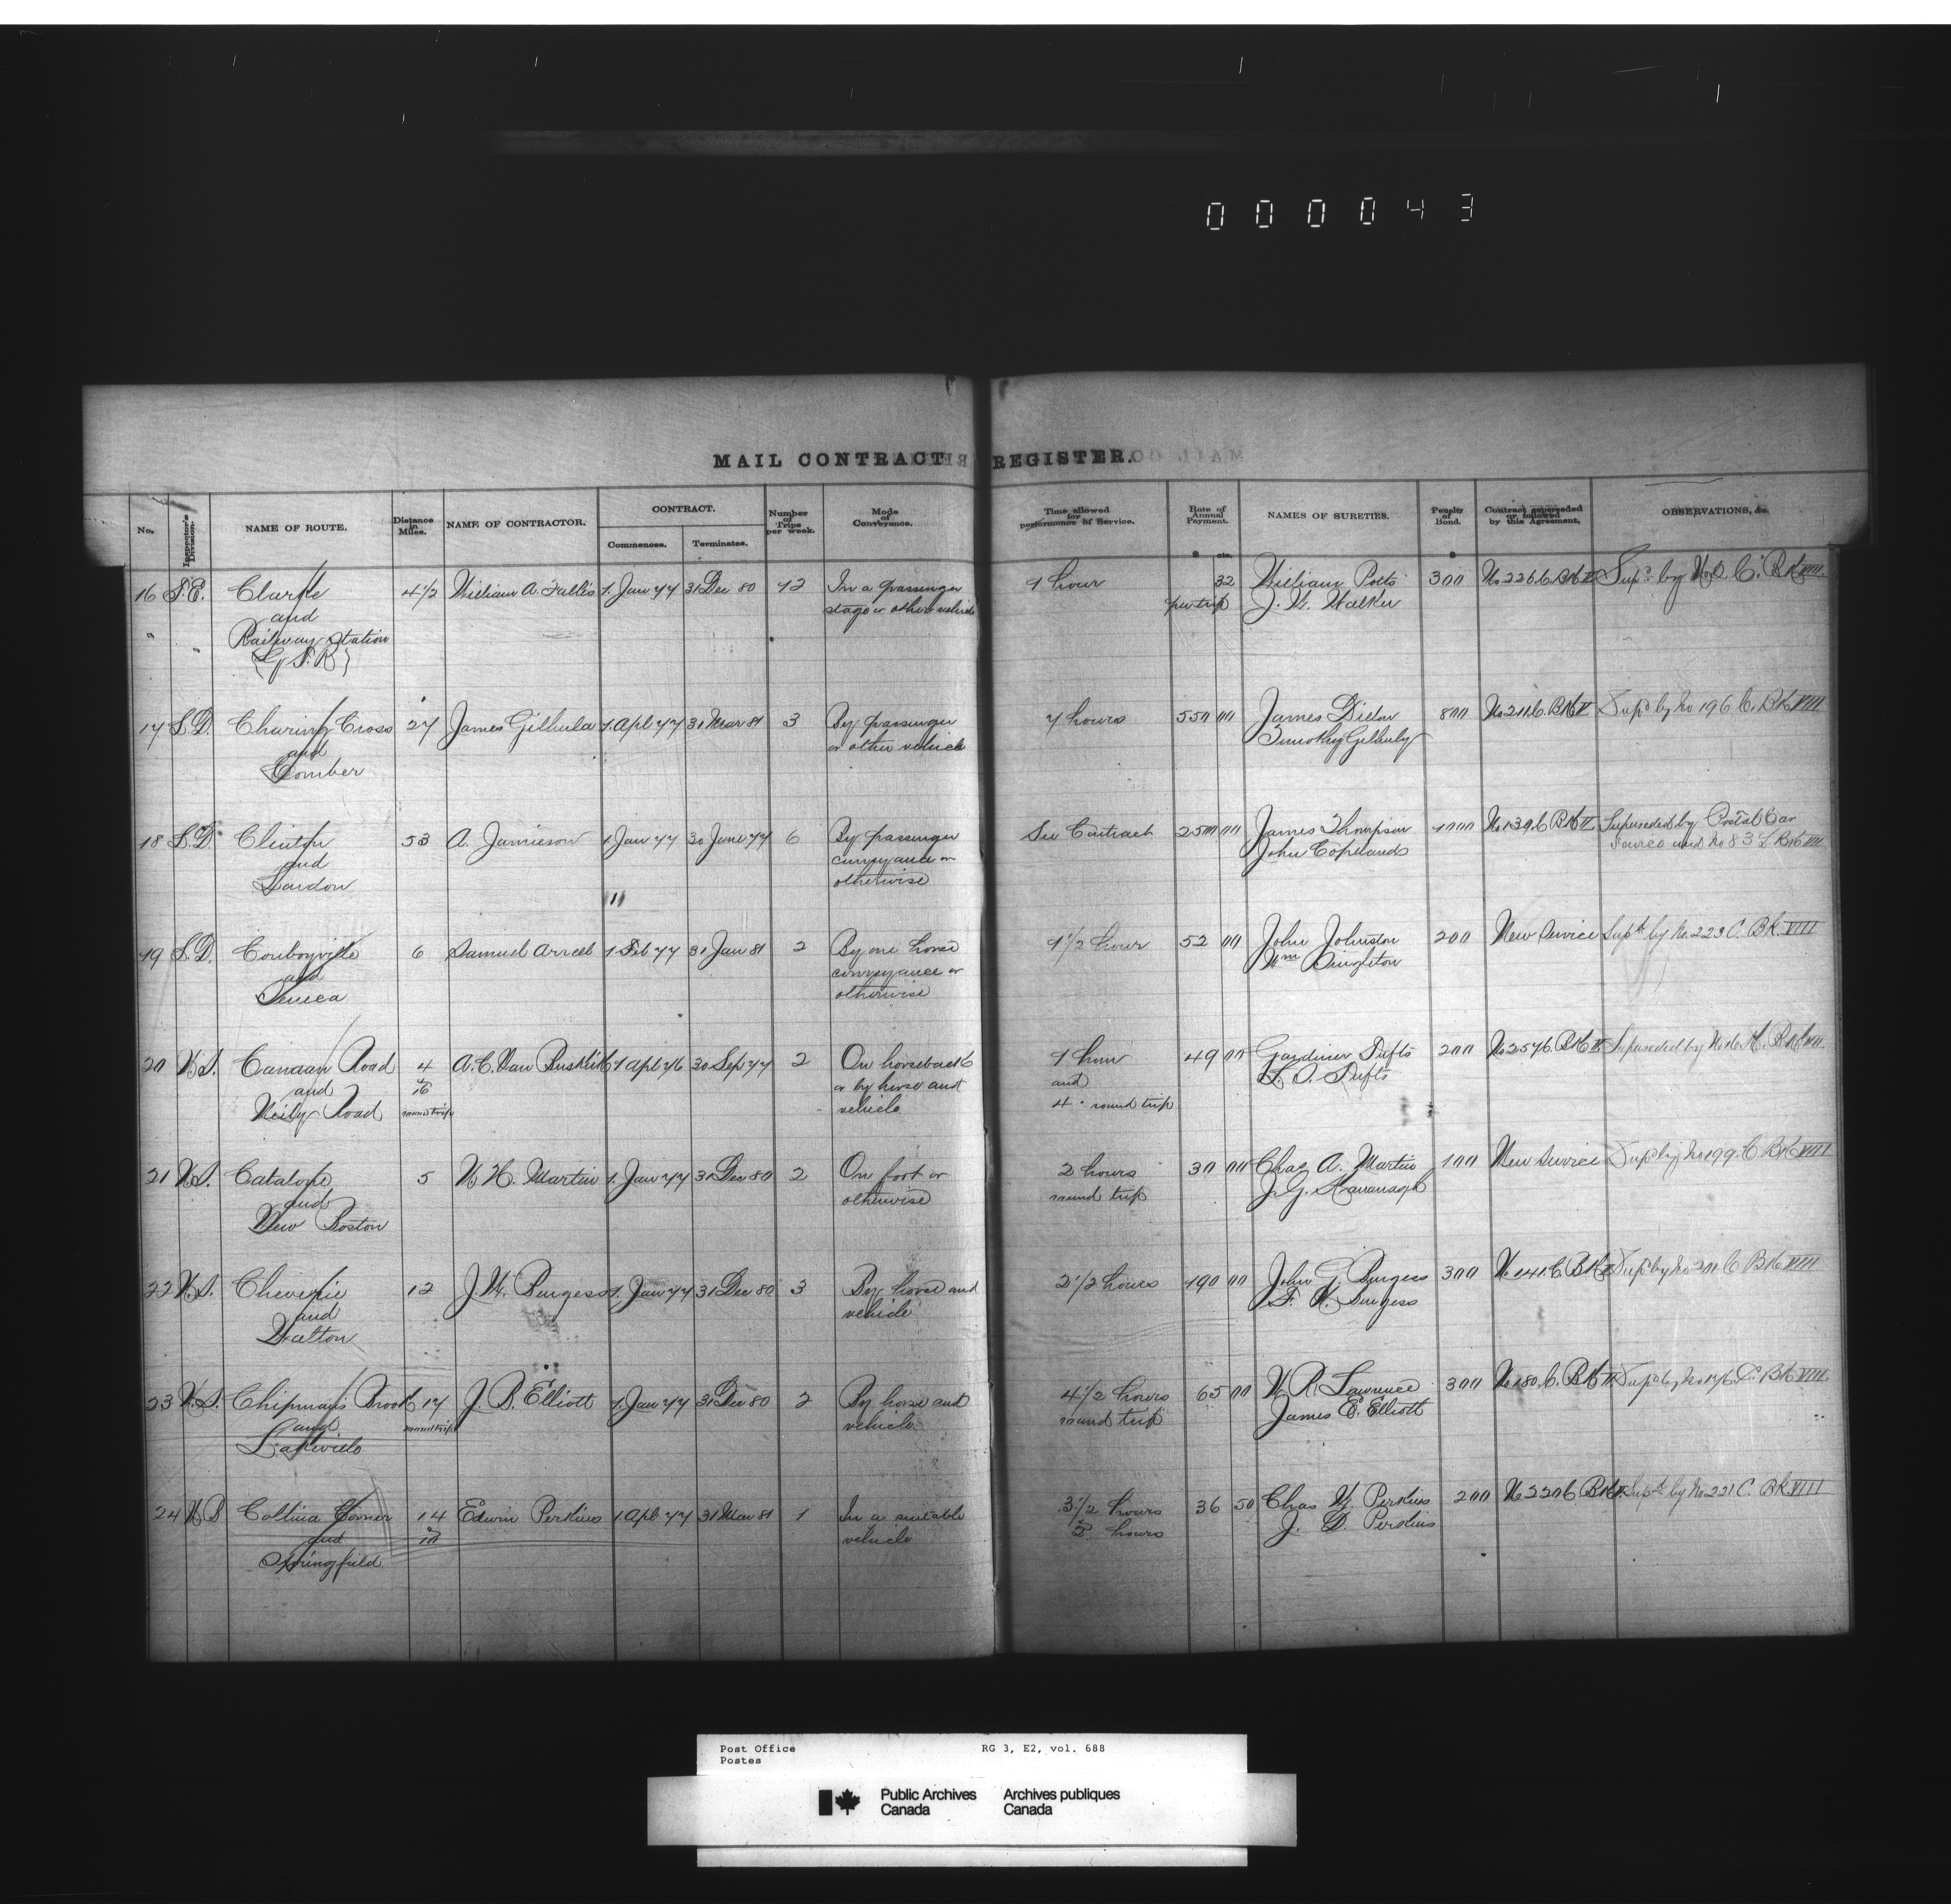 000043
MAIL CONTRACT REGISTER.
No. Inspector's Division. NAME OF ROUTE. Distance in Miles. NAME OF CONTRACTOR. CONTRACT. Commences. Terminates. Number of Trips per week. Mode of Conveyance. Time allowed for performance of Service. Rate of Annual Payment. $ cts. NAMES OF SURETIES. Penalty of Bond. $ Contract superseded or followed by this Agreement. OBSERVATIONS, &c.
16 S.E. Clarke 4 1/2 William A. Fallis 1 Jany 77 31 Dec 80 12 In a passenger 1 hour 32 William Potts 300 No 226 C. Bk II Supd by C. Bk VIII.
and stage or other vehicle per trip J. W. Walker
Railway Station
(G T. R)
17 S.D. Charing Cross 27 James Gilhula 1 Apl 77 31 Mar 81 3 By passenger 7 hours 550 00 James Dillon 800 No 211 C. Bk II Supd by No 196 C. Bk VIII
and or other vehicle Timothy Gilhuly
Comber
18 S.D. Clinton 53 A. Jamieson 1 Jany 77 30 June 77 6 By passenger See Contract 2500 00 James Thompson 1000 No 139 C Bk II Superseded by Postal Car
and conveyance or John Copeland Service and No 83 L Bk VIII
London otherwise
19 S.D. Conboyville 6 Samuel 1 Feb 77 31 Jan 81 2 By one horse 1 1/2 hour 52 00 John Johnston 200 New Service Supd by No. 223 C. Bk. VIII
and conveyance or Wm Singleton
Seneca otherwise
20 N.S. Canaan Road 4 A. C. Van Buskirk 1 Apl 76 30 Sep 77 2 On horseback 1 hour 49 00 Gardiner Tufts 200 No 257 C. Bk II Superseded by Bk VIII.
and & 16 or by horse and and Tufts
Neily Road round trip vehicle 4 " round trip
21 N.S. Catalone 5 W. H. Martin 1 Jany 77 31 Dec 80 2 On foot or 2 hours 30 00 Chas A. Martin 100 New Service Supd by No 199 C Bk VIII
and otherwise round trip J. G. Kavanagh
New Boston
22 N.S. Cheverie 12 J. W. Burgess 1 Jany 77 31 Dec 80 3 By horse and 2 1/2 hours 190 00 John G. Burgess 300 No 141 C. Bk II Supd by No 201 C Bk VIII
and vehicle Burgess
Walton
23 N.S. Chipman's Brook 17 J. B. Elliott 1 Jany 77 31 Dec 80 2 By horse and 4 1/2 hours 65 00 W. R. Lawrence 300 No 180 C. Bk II Supd by No 176 C. Bk VIII.
and round trip vehicle round trip James E. Elliott
Lakeville
24 N.B Collina Corner 14 Edwin Perkins 1 Apl 77 31 Mar 81 1 In a suitable 3 1/2 hours 36 50 Chas W. Perkins 200 No 220 C Bk II Supd by No 221 C. Bk VIII
and & 10 vehicle & hours J. D. Perkins
Springfield
Post Office RG 3, E2, vol. 688
Postes
Public Archives Archives publiques
Canada Canada